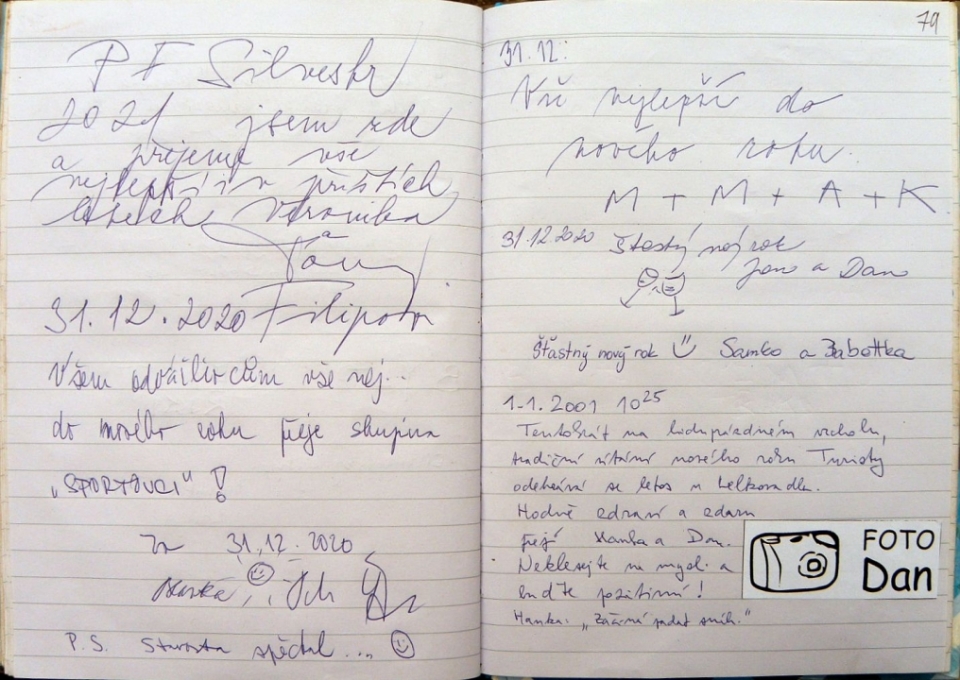 PF Silvestr
2021 jsem zde
a přejeme vše
nejlepší i v příštích
letech Veronika
a
31.12.2020 Filipova
Všem odvážlivcům vše nej...
do nového roku přeje skupina
„SPORTOVCI" !
31.12.2020
P.S. Starosta spěchal ... ☺
79
31.12.:
Vše nejlepší do
nového roku.
M + M + A + K
31.12.2020 Šťastný nový rok
Jana a Dan
Šťastný nový rok Samko a Babettka
1.1.2001 10²⁵
Tentokrát na liduprázdném vrcholu,
tradiční vítání nového roku Turisty
odehrává se letos u
Hodně zdraví a zdaru
přejí Hanka a Dan.
Neklesejte na mysli a
buďte pozitivní!
Hanka: „Začíná padat sníh."
FOTO
Dan